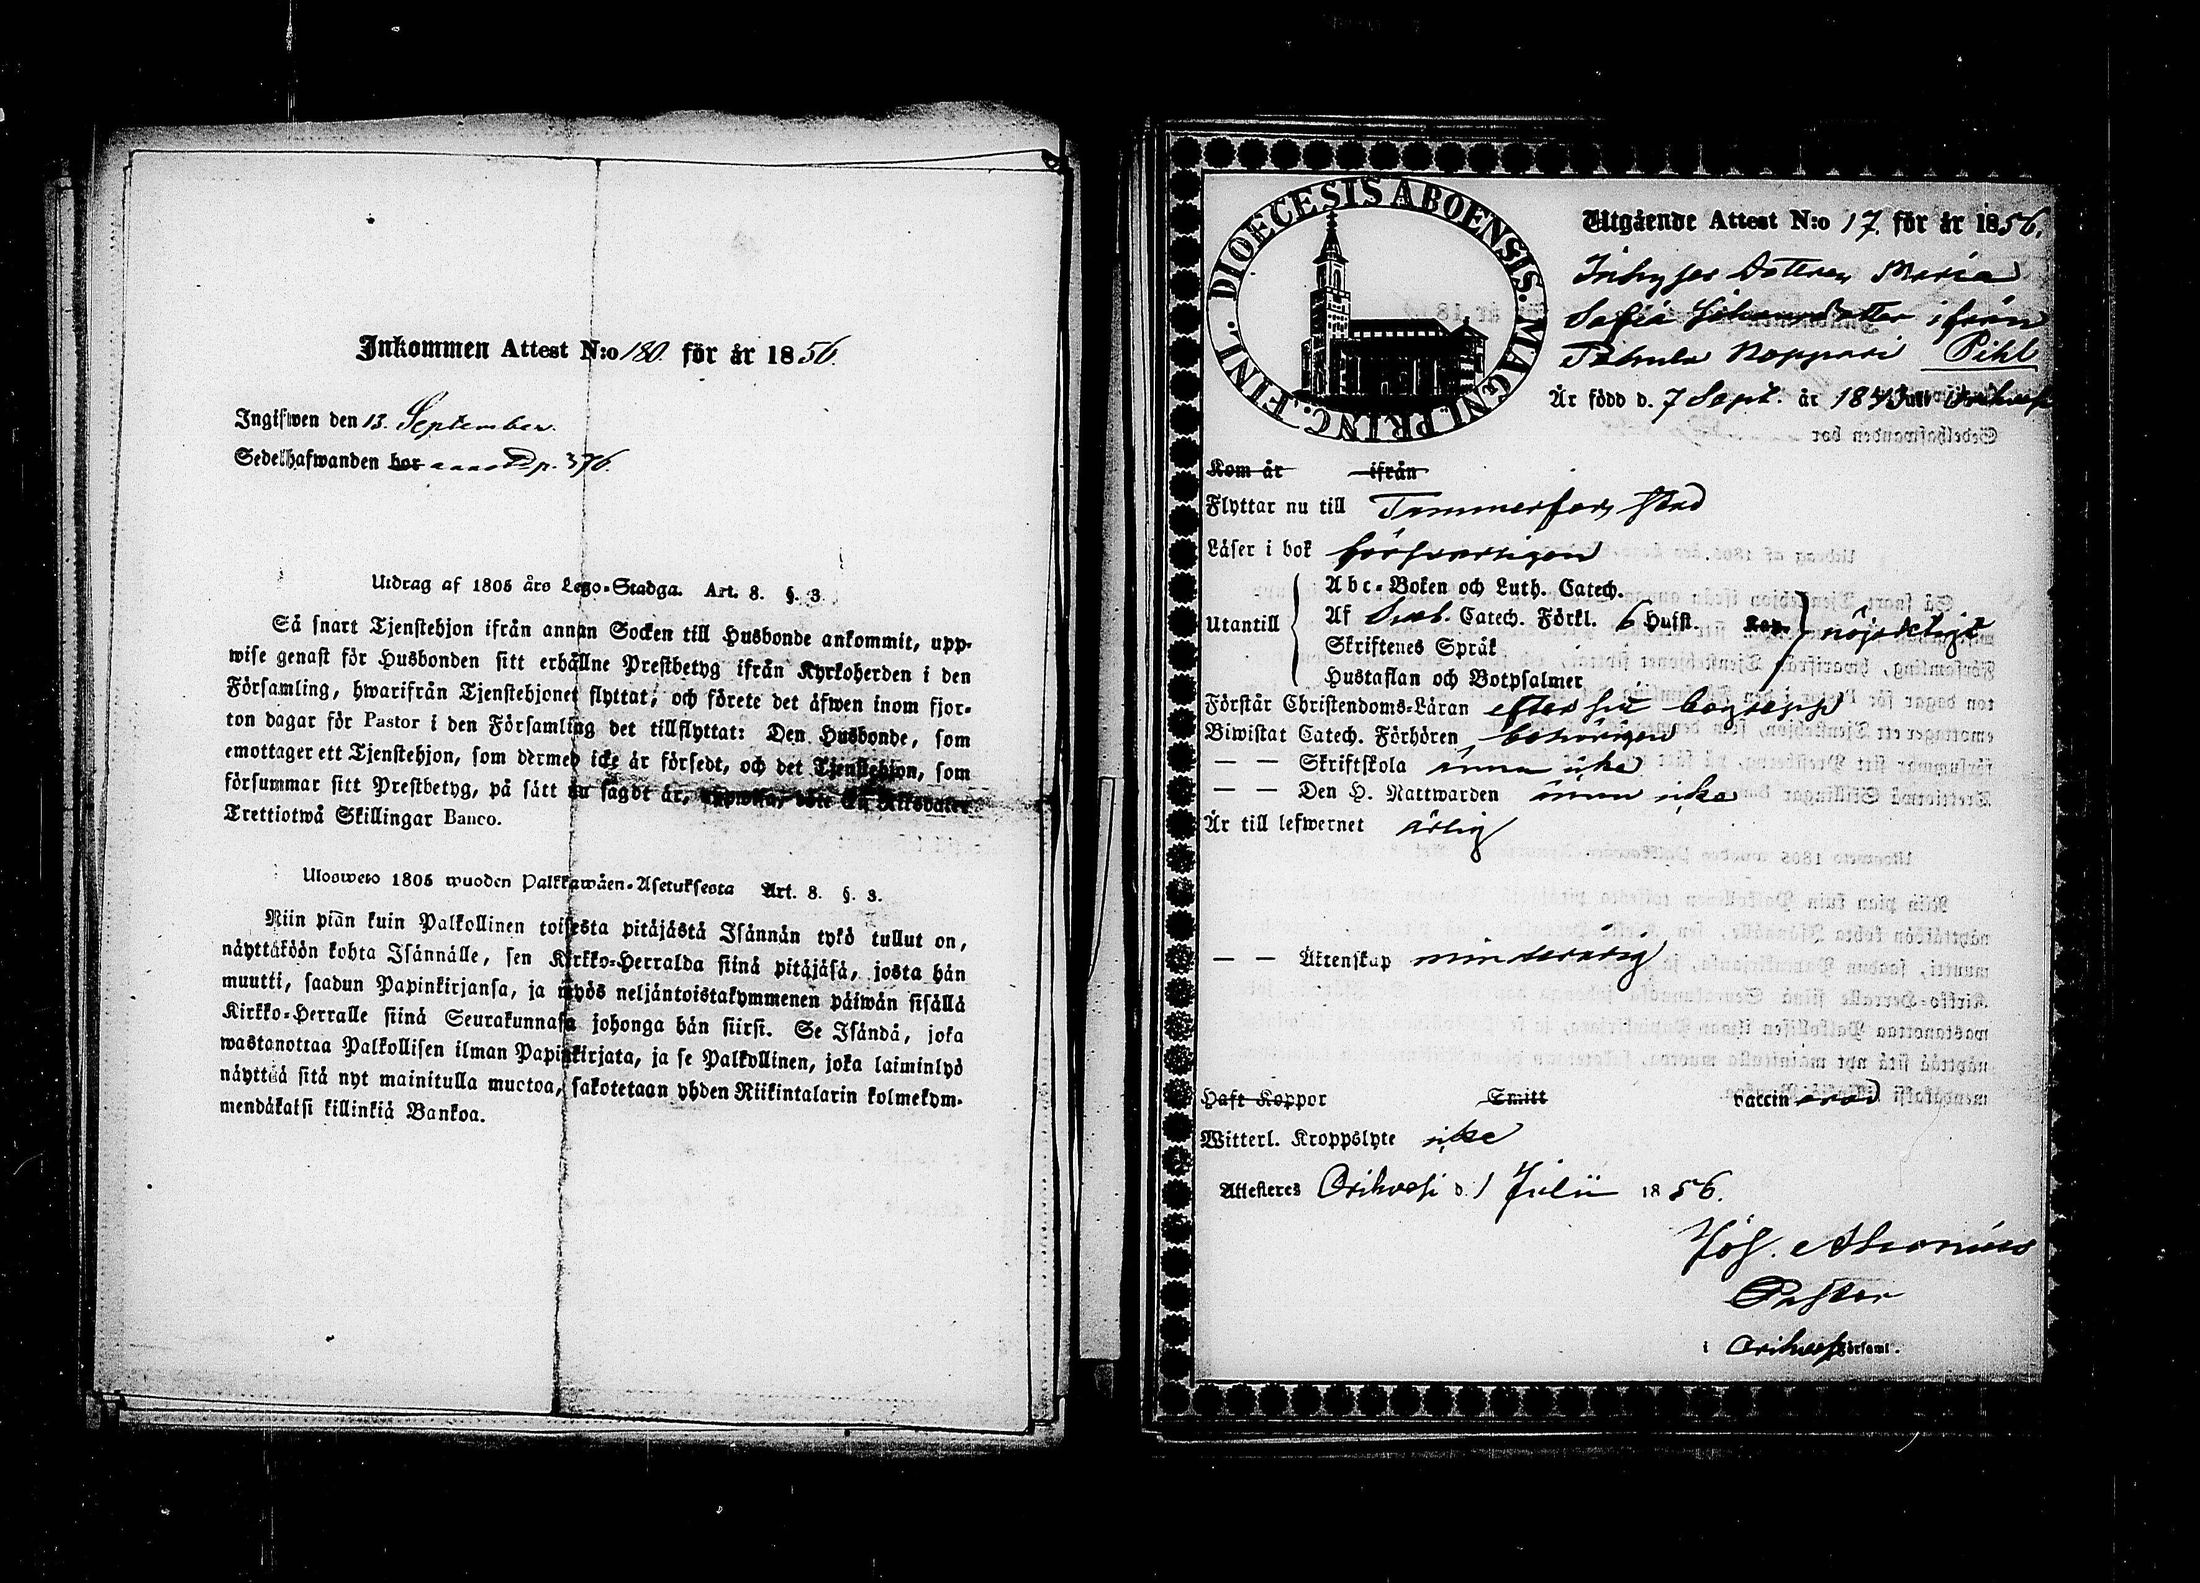 Inkommen Attest N:o 180. för år 1856.
Ingifwen den 13. September.
Sedelhafwanden bor p. 376.
Utdrag af 1805 års Lego-Stadga. Art. 8. §. 3.
Så snart Tjenstehjon ifrån annan Socken till Husbonde ankommit, upp-
wise genast för Husbonden sitt erhållne Prestbetyg ifrån Kyrkoherden i den
Församling, hwarifrån Tjenstehjonet flyttat, och förete det äfwen inom fjor-
ton dagar för Pastor i den Församling det tillflyttat: Den Husbonde, som
emottager ett Tjenstehjon, som dermed icke är försedt, och det Tjenstehjon, som
försummar sitt Prestbetyg, på sätt nu sagdt är, uppwisa, böte En Riksdaler
Trettiotwå Skillingar Banco.
Ulosweto 1805 wuoden Palkkawäen-Asetuksesta Art. 8. §. 3.
Niin piän kuin Palkollinen toisesta pitäjästä Isännän tykö tullut on,
näyttäköön kohta Isännälle, sen Kirkko-Herralda siinä pitäjäsä, josta hän
muutti, saadun Papinkirjansa, ja myös neljäntoistakymmenen päiwän sisällä
Kirkko-Herralle siinä Seurakunnasa johonga hän siirsi. Se Isändä, joka
wastanottaa Palkollisen ilman Papinkirjata, ja se Palkollinen, joka laiminlyö
näyttää sitä nyt mainitulla muotoa, sakotetaan yhden Riikintalarin kolmekym-
mendäkaksi killinkiä Bankoa.
DIOECESIS ABOENSIS. MAGNI PRINC. FINL.
Utgående Attest N:o 17. för år 1856.
Inhyses Dottren Maria
Sofia Johansdotter ifrån
Noppari Pihl
Är född d. 7 Sept. år 1843 uti Orihvesi
Kom år ifrån
Flyttar nu till Tammerfors stad
Läser i bok försvarligen
Abc-Boken och Luth. Catech.
Utantill Af Sveb. Catech. Förkl. 6 Hufst. Kap. nöjaktigt
Skriftenes Språk
Hustaflan och Botpsalmer
Förstår Christendoms-Läran efter sitt begrepp
Biwistat Catech. Förhören behörigen
— — Skriftskola ännu icke
— — Den H. Nattwarden ännu icke
Är till lefwernet ärlig
— — Äktenskap minderårig
Haft Koppor Smitt vaccinerad
Witterl. Kroppslyte icke
Attesteres Orihvesi d. 1 Julii 1856.
Joh. Aeronius
Pastor
i Orihvesi Församl.